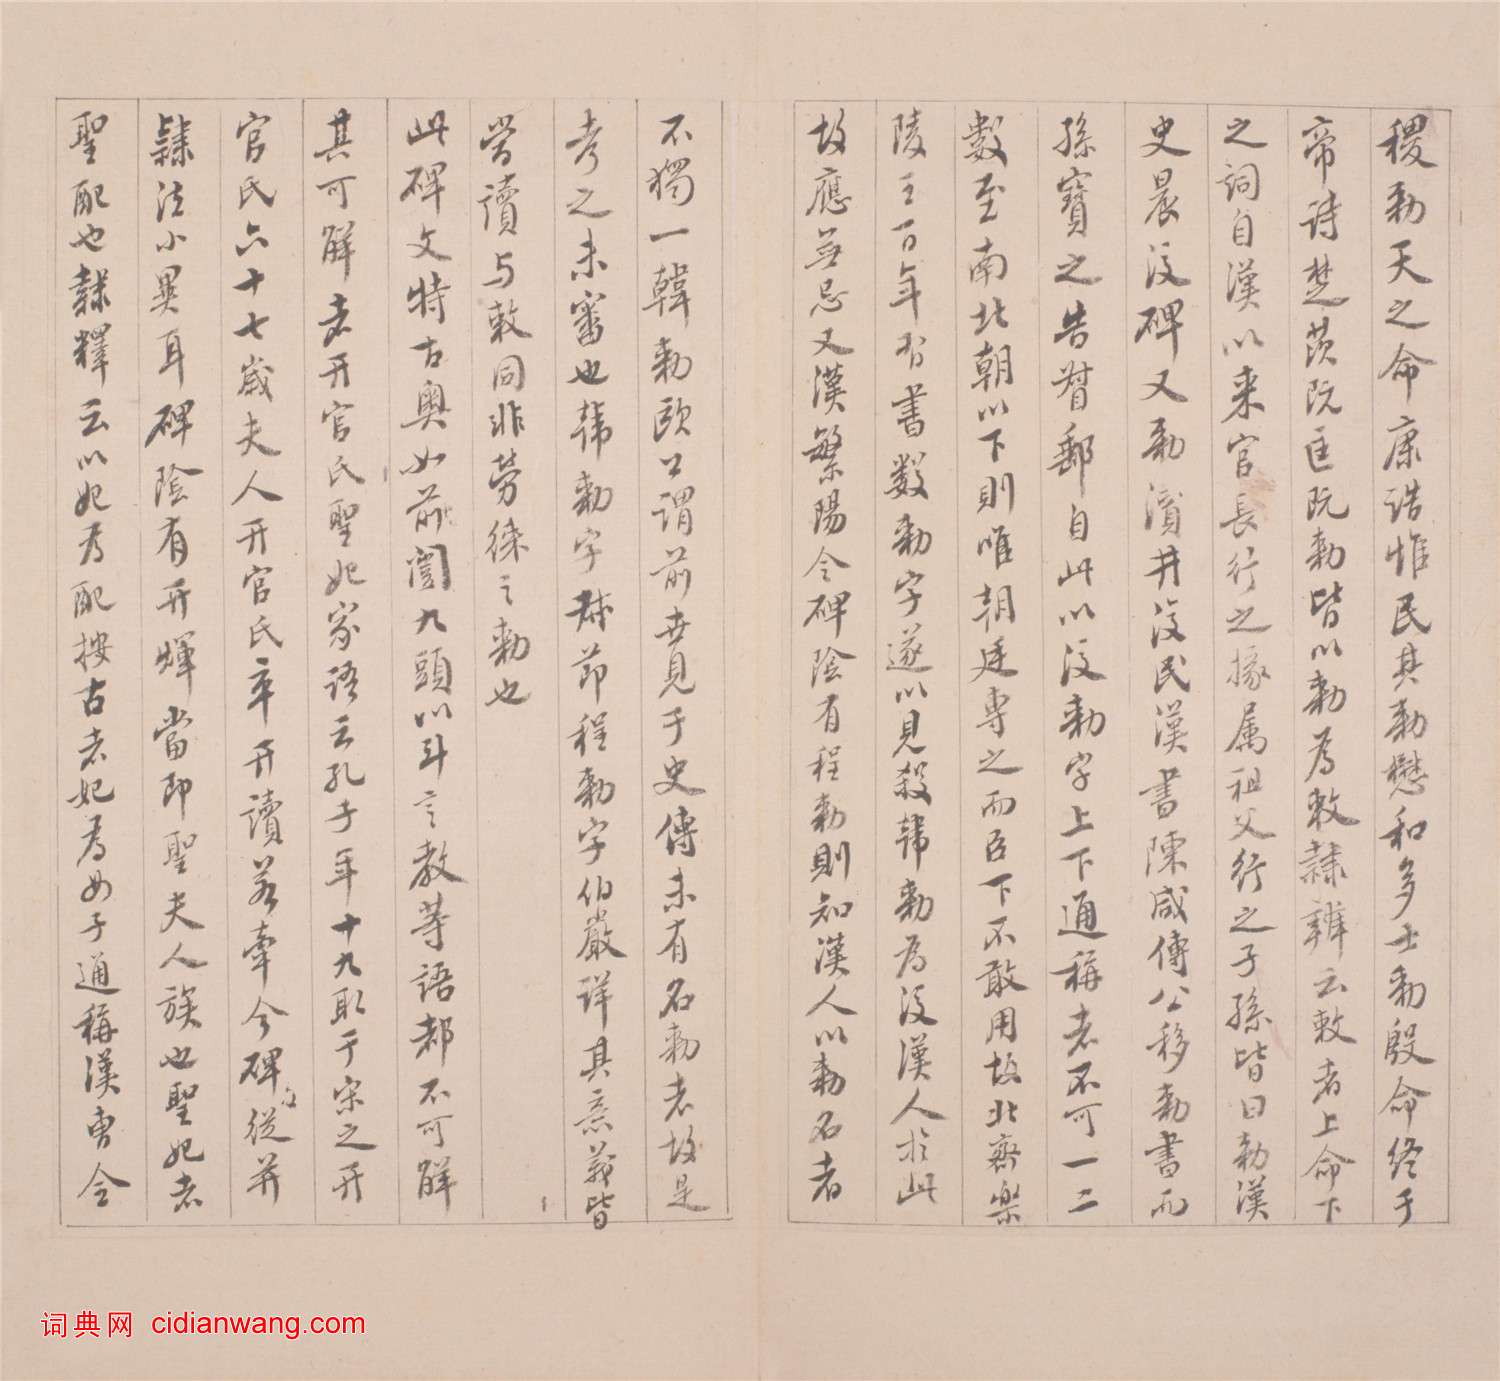 稷勑天之命康誥惟民其勑懋和多士勑殷命终于
帝詩楚茨既匡既勑皆以勑為敕隸辨云敕者上命下
之詞自漢以来官長行之掾属祖父行之子孫皆曰勑漢
史晨後碑又勑瀆井後民漢書陳咸傳公移勑書而
孫寶之告督郵自此以後勑字上下通稱者不可一二
數至南北朝以下則唯朝廷專之而臣下不敢用故北齊樂
陵王百年習書數勑字遂以見殺韩勑為後漢人於此
故應無忌又漢繁陽令碑陰有程勑則知漢人以勑名者
不獨一韓勑歐公謂前世見于史傳未有名勑者故是
考之未審也韩勑字叔節程勑字伯嚴詳其意義皆
當讀与敕同非勞徠之勑也
此碑文特古奧如前闓九頭以斗言教等語都不可解
其可解者开官氏聖妃家語云孔子年十九取于宋之开
官氏六十七歲夫人开官氏卒开讀若牽今碑從并
隸法小異耳碑陰有开煇當即聖夫人族也聖妃者
聖配也隸釋云以妃為配按古者妃為女子通稱漢曹全
词典网 cidianwang.com